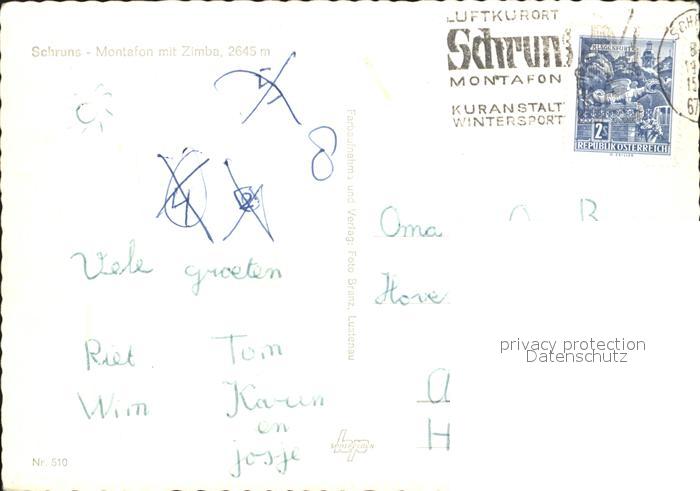 LUFTKURORT
Schruns
MONTAFON
KURANSTALT
WINTERSPORT
KLAGENFURT
2S
REPUBLIK ÖSTERREICH
Schruns - Montafon mit Zimba, 2645 m
8
Farbaufnahme und Verlag: Foto Branz, Lustenau
Oma
Viele groeten
Hove
privacy protection
Datenschutz
Riet Tom
Wim Karin
en
josje
A
H
Nr. 510